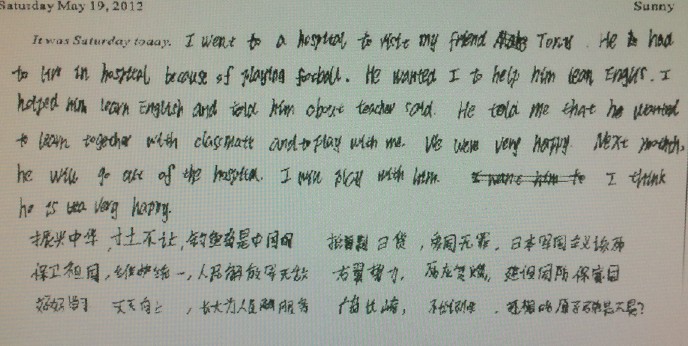 Saturday May 19, 2012 Sunny
It was Saturday today. I went to a hospital to visit my friend Tony. He had
to live in hospital because of playing football. He wanted I to help him lean Englis. I
helped him learn English and told him about teacher said. He told me that he wanted
to learn together with classmate and to play with me. We were very happy. Next month,
he will go out of the hospital. I will play with him. I want him to I think
he is very happy.
振兴中华，寸土不让，钓鱼岛是中国的 抵制日货，爱国无罪，日本军国主义
保卫祖国，维护统一，人民解放军无敌 右翼势力， 建设国防保家园
好好学习 天天向上，长大为人民服务 广岛长崎，不够， 原子弹是不是？